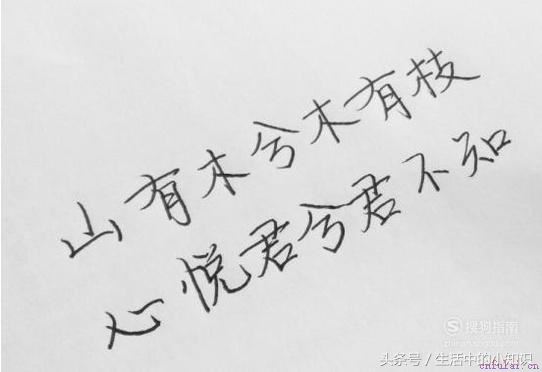 山有木兮木有枝
心悦君兮君不知
搜狗指南
zhinan.sogou.com
头条号/生活中的小知识
cnfulai.cn